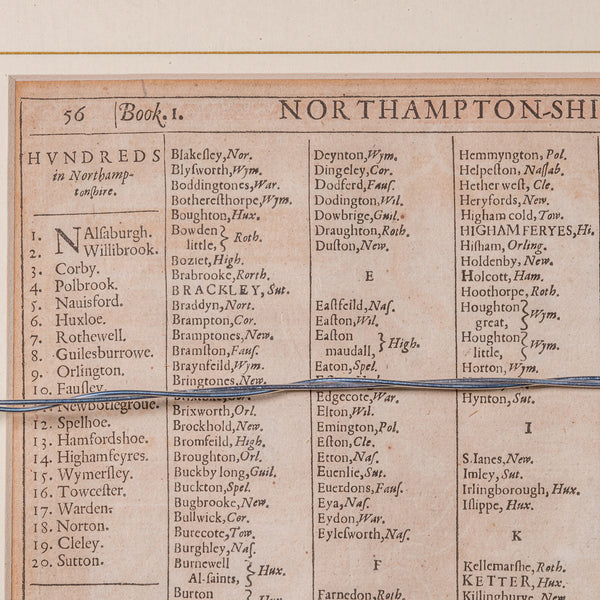 56
Book. 1.
NORTHAMPTON-SHI
HVNDREDS
in Northamp-
tonſhire.
1. NAſſaburgh.
2. Willibrook.
3. Corby.
4. Polbrook.
5. Nauisford.
6. Huxloe.
7. Rothewell.
8. Guilesburrowe.
9. Orlington.
10. Fauſley.
11. Newbotlegroue.
12. Spelhoe.
13. Hamfordshoe.
14. Highamfeyres.
15. Wymerſley.
16. Towceſter.
17. Warden.
18. Norton.
19. Cleley.
20. Sutton.
Blakeſley, Nor.
Blyſworth, Wym.
Boddingtones, War.
Botheresthorpe, Wym.
Boughton, Hux.
Bowden
little, } Roth.
Boziet, High.
Brabrooke, Rorth.
BRACKLEY, Sut.
Braddyn, Nort.
Brampton, Cor.
Bramptones, New.
Bramſton, Fauſ.
Braynfeild, Wym.
Bringtones, New.
Brixworth, Orl.
Brockhold, New.
Bromfeild, High.
Broughton, Orl.
Buckby long, Guil.
Buckton, Spel.
Bugbrooke, New.
Bullwick, Cor.
Burecote, Tow.
Burghley, Naſ.
Burnewell
Al-ſaints, } Hux.
Burton
Hux.
Deynton, Wym.
Dingeley, Cor.
Dodferd, Fauſ.
Dodington, Wil.
Dowbrige, Guil.
Draughton, Roth.
Duſton, New.
E
Eaſtfeild, Naſ.
Eaſton, Wil.
Eaſton
maudall, } High.
Eaton, Spel.
Edgecote, War.
Elton, Wil.
Emington, Pol.
Eſton, Cle.
Etton, Naſ.
Euenlie, Sut.
Euerdons, Fauſ.
Eya, Naſ.
Eydon, War.
Eyleſworth, Naſ.
F
Farnedon, Roth.
Hemmyngton, Pol.
Helpeſton, Naſſab.
Hether weſt, Cle.
Heryfords, New.
Higham cold, Tow.
HIGHAM FERYES, Hi.
Hiſham, Orling.
Holdenby, New.
Holcott, Ham.
Hoothorpe, Roth.
Houghton
great, } Wym.
Houghton
little, } Wym.
Horton, Wym.
Hynton, Sut.
I
S. Ianes, New.
Imley, Sut.
Irlingborough, Hux.
Iſlippe, Hux.
K
Kellemarſhe, Roth.
KETTER, Hux.
Killingburye, New.